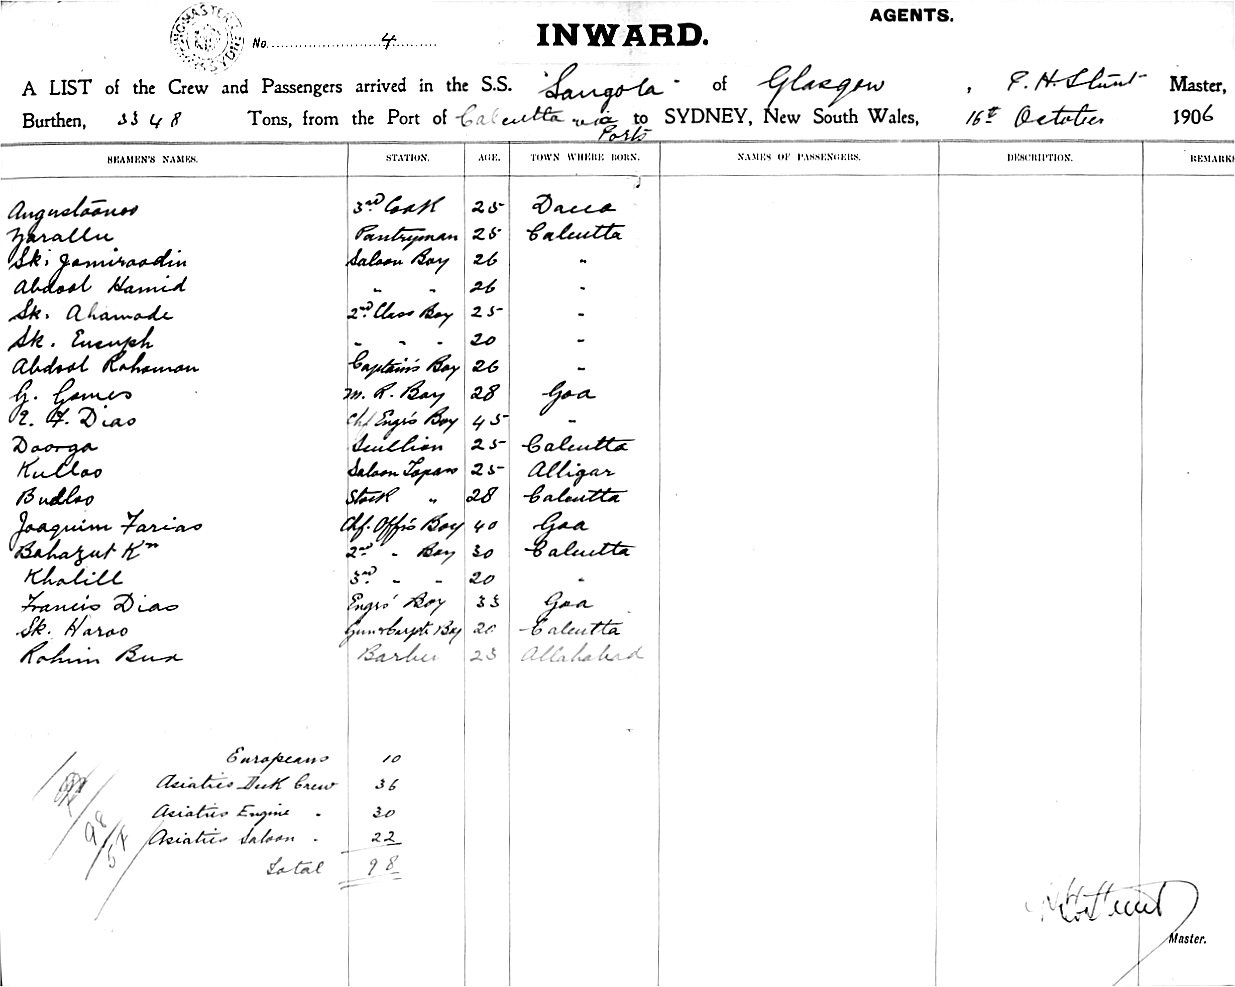 AGENTS.
No. 4 INWARD.
A LIST of the Crew and Passengers arrived in the S.S. "Sangola" of Glasgow, P. H. Stunt Master,
Burthen, 3348 Tons, from the Port of Calcutta via Ports to SYDNEY, New South Wales, 16th October 1906
SEAMEN'S NAMES. STATION. AGE. TOWN WHERE BORN. NAMES OF PASSENGERS. DESCRIPTION. REMARKS
3rd Cook 25 Dacca
Pantryman 25 Calcutta
Sk. Jamiroodin Saloon Boy 26 "
Abdool Hamid " " 26 "
Sk. Ahamode 2nd Class Boy 25 "
Sk. Eusuph " " " 20 "
Abdool Rohoman Captain's Boy 26 "
G. Gomes M. R. Boy 28 Goa
Dias Chf Engrs Boy 45 "
Doorga Scullion 25 Calcutta
Kulloo Saloon Topass 25 Alligar
Budloo Stock " 28 Calcutta
Joaquim Farias Chf. Offrs Boy 40 Goa
Bahazut Kn 2nd " Boy 30 Calcutta
Khalill 3rd " " 20 "
Francis Dias Engrs' Boy 33 Goa
Sk. Haroo Gunr & Carptr Boy 20 Calcutta
Rohim Bux Barber 23 Allahabad
Europeans 10
Asiatics Deck Crew 36
Asiatics Engine " 30
Asiatics Saloon " 22
Total 98
98
Master.